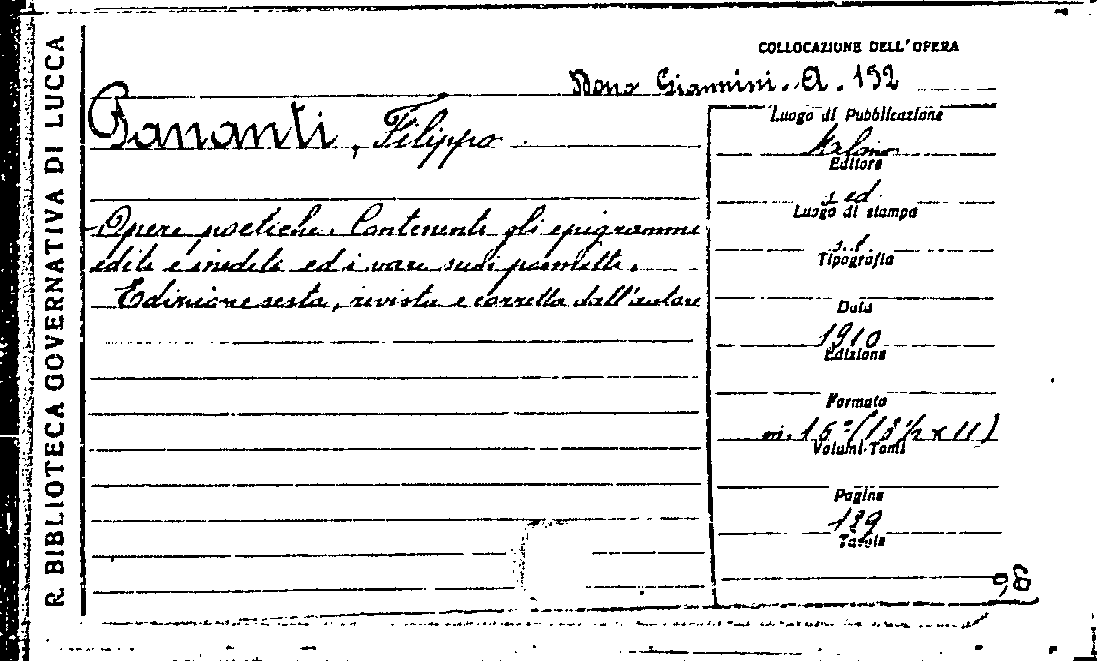 R. BIBLIOTECA GOVERNATIVA DI LUCCA
COLLOCAZIONE DELL'OPERA
Dono Giannini. A. 152
Pananti, Filippo
Opere poetiche. Contenente gli epigrammi
editi e inediti ed i vari suoi poemetti.
Edizione sesta, rivista e corretta dall'autore
Luogo di Pubblicazione
Milano
Editore
s. ed
Luogo di stampa
s. l
Tipografia
Data
1910
Edizione
Formato
in. 16° (18½ x 11)
Volumi-Tomi
Pagine
139
Tavole